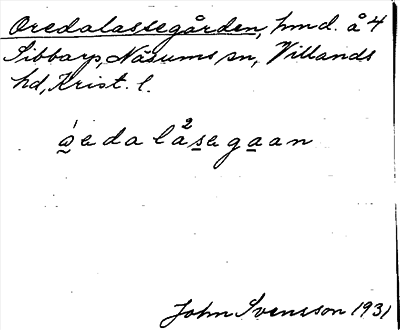 Oredalassegården, hmd. å 4
Sibbarp, Näsums sn, Villands
hd, Krist. l.
John Svensson 1931